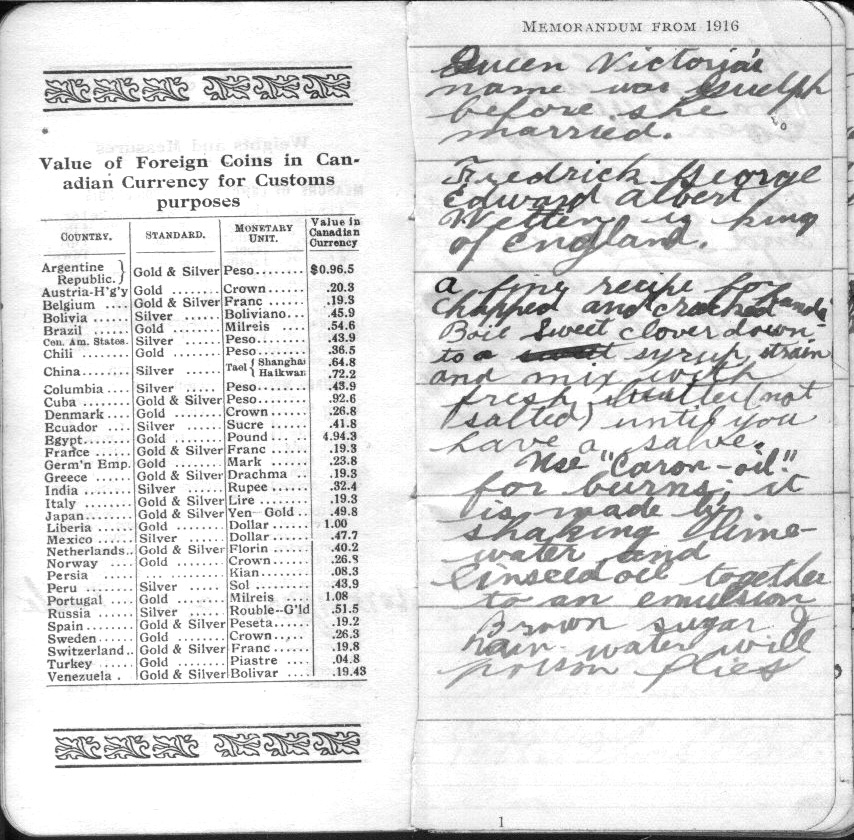 Value of Foreign Coins in Can-
adian Currency for Customs
purposes
COUNTRY. STANDARD. MONETARY UNIT. Value in Canadian Currency
Argentine Republic. } Gold & Silver Peso........ $0.96.5
Austria-H'g'y Gold ........ Crown...... .20.3
Belgium .... Gold & Silver Franc ...... .19.3
Bolivia ...... Silver ...... Boliviano... .45.9
Brazil ...... Gold ...... Milreis ..... .54.6
Con. Am. States. Silver ...... Peso........ .43.9
Chili ........ Gold ....... Peso........ .36.5
China........ Silver ...... Tael { Shanghai .64.8
Haikwan .72.2
Columbia ... Silver ...... Peso........ .43.9
Cuba ........ Gold & Silver Peso........ .92.6
Denmark .... Gold ....... Crown...... .26.8
Ecuador .... Silver ...... Sucre ...... .41.8
Egypt....... Gold ....... Pound ... . 4.94.3
France ...... Gold & Silver Franc ...... .19.3
Germ'n Emp. Gold ....... Mark ...... .23.8
Greece ...... Gold & Silver Drachma .. .19.3
India ........ Silver ...... Rupee ...... .32.4
Italy ........ Gold & Silver Lire ........ .19.3
Japan....... Gold & Silver Yen- Gold.. .49.8
Liberia ..... Gold ....... Dollar ..... 1.00
Mexico ...... Silver ...... Dollar ..... .47.7
Netherlands.. Gold & Silver Florin ..... .40.2
Norway .... Gold ....... Crown...... .26.8
Persia ........... Kian....... .08.3
Peru ........ Silver ...... Sol ........ .43.9
Portugal .... Gold ....... Milreis 1.08
Russia ...... Silver ...... Rouble--G'ld .51.5
Spain ....... Gold & Silver Peseta..... .19.2
Sweden...... Gold ....... Crown..... .26.3
Switzerland.. Gold & Silver Franc ...... .19.8
Turkey ..... Gold ....... Piastre .... .04.8
Venezuela . Gold & Silver Bolivar .... .19.43
MEMORANDUM FROM 1916
Queen Victoria's
name was Guelph
before she
married.
Fredrick George
Edward Albert
Wetten is king
of England.
a fine recipe for
chapped and cracked hands
Boil Sweet clover down
to a syrup, strain
and mix with
fresh butter (not
salted) until you
have a salve.
Use "Caron-oil"
for burns; it
is made by
shaking lime-
water and
linseed oil together
to an emulsion
Brown sugar &
rain-water will
poison flies
1